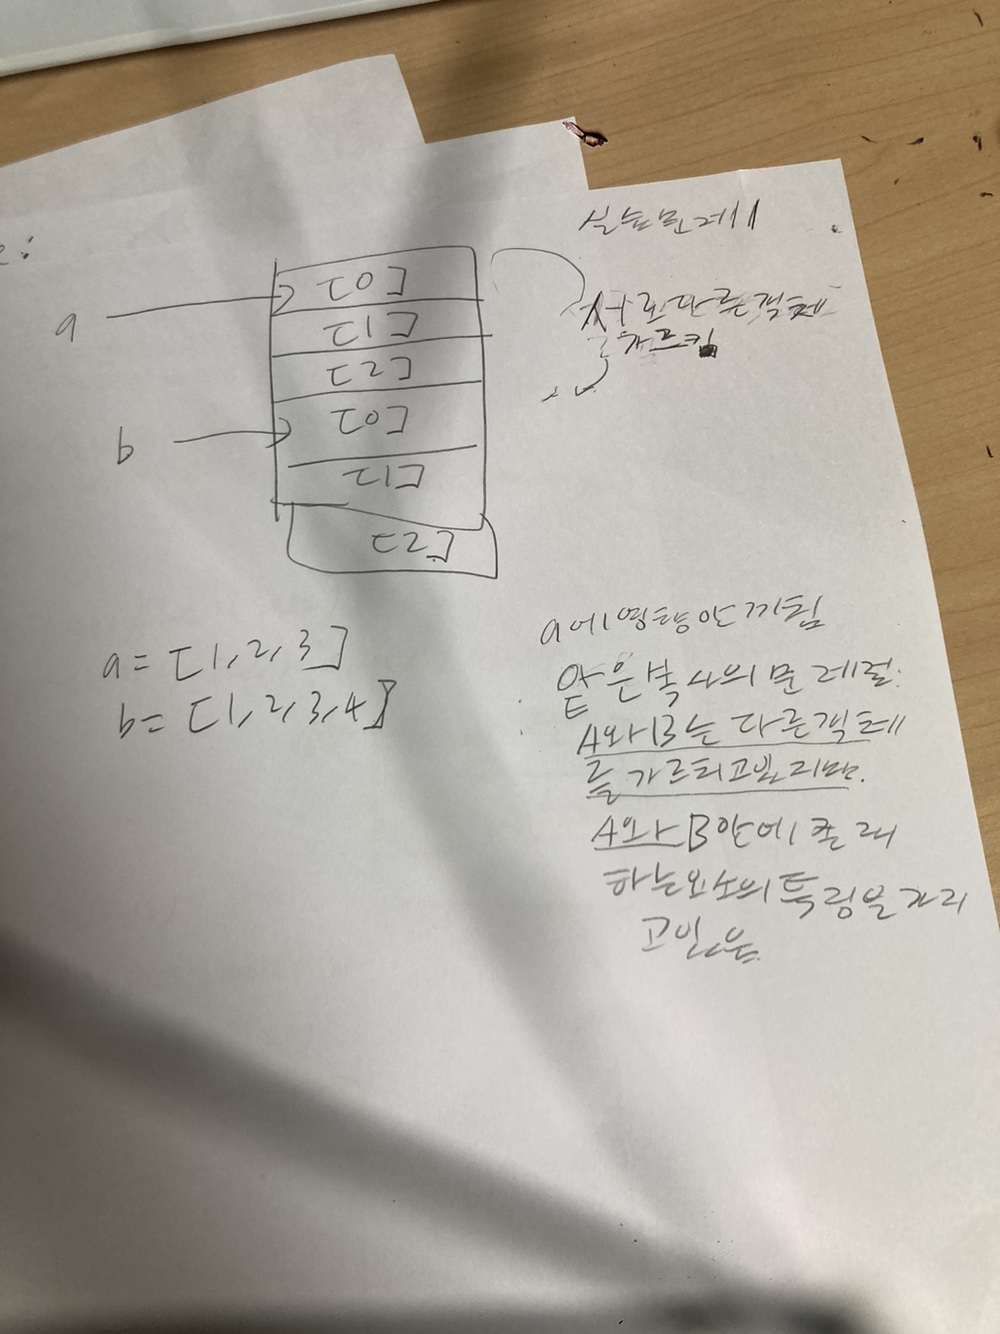 실습문제11
a
[0]
[1]
[2]
b
[0]
[1]
[2]
서로다른객체
를가르킴
a = [1, 2, 3]
b = [1, 2, 3, 4]
a에영향안끼침
얕은복사의문제점:
A와B는 다른객체
를가르키고있지만.
A와B안에 존재
하는요소의특징을가지
고있음.